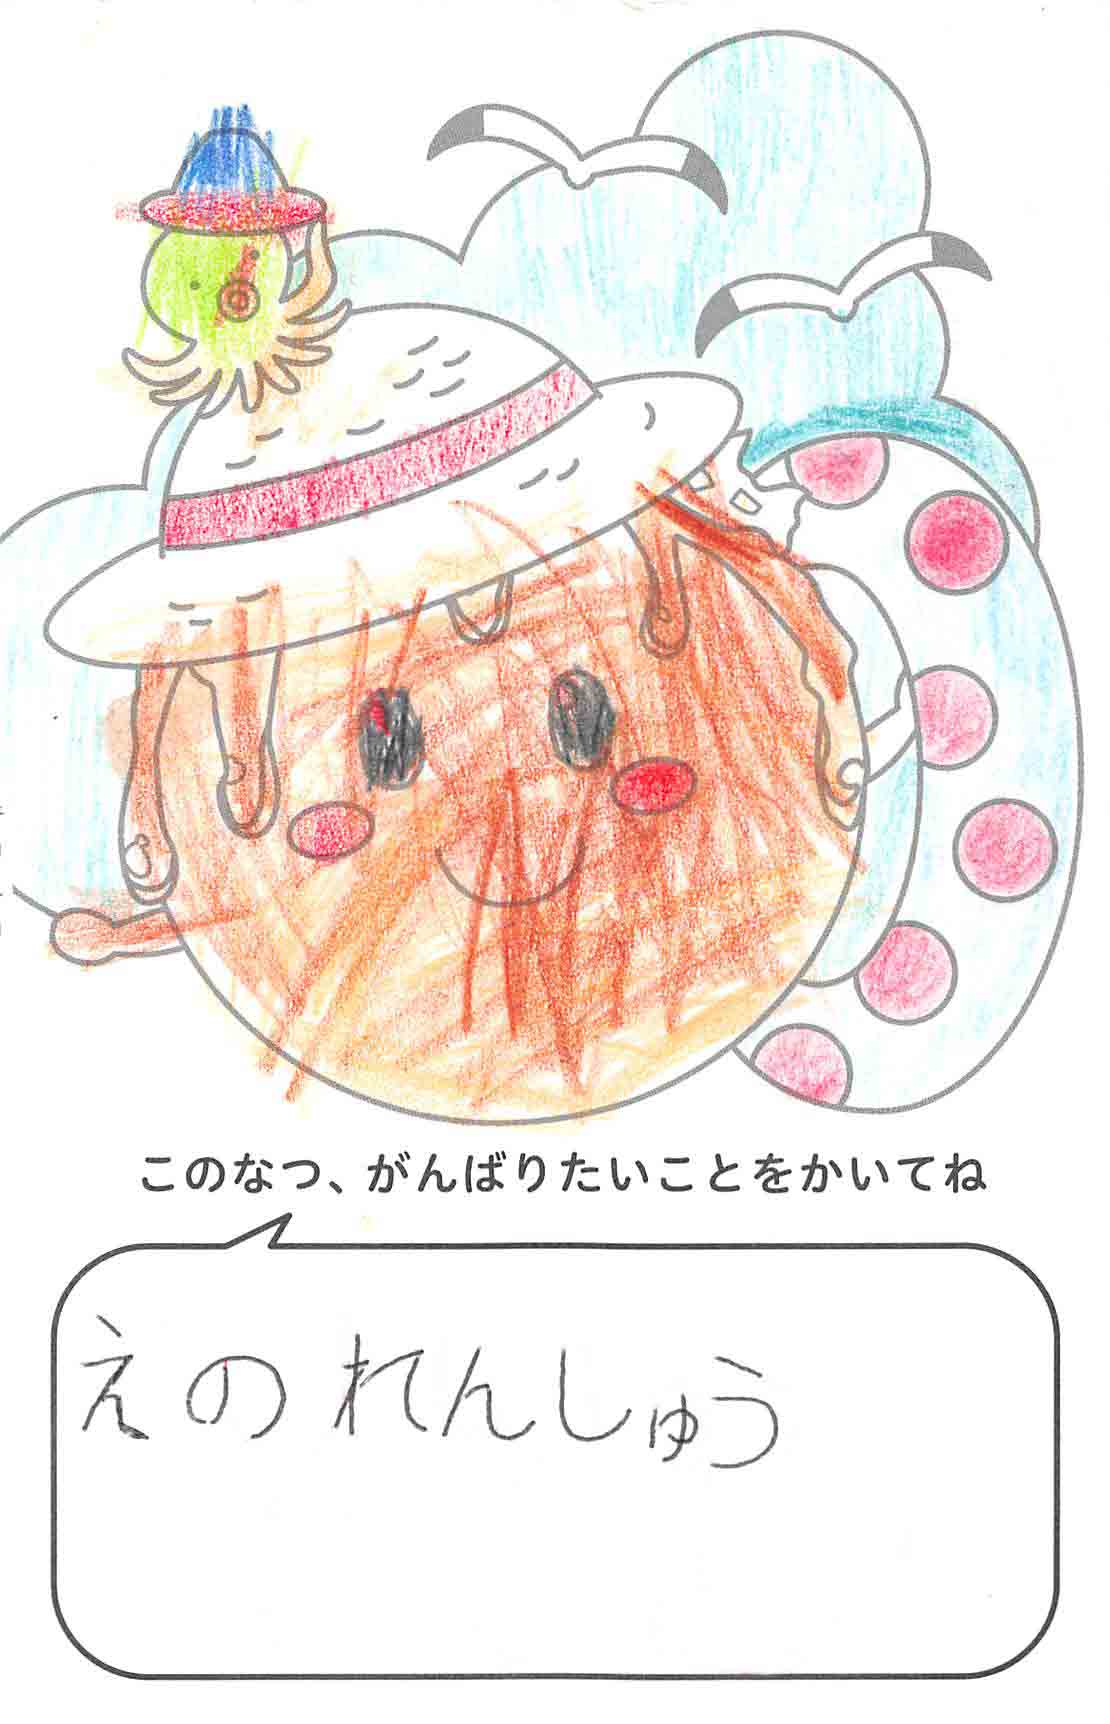 このなつ、がんばりたいことをかいてね
えのれんしゅう